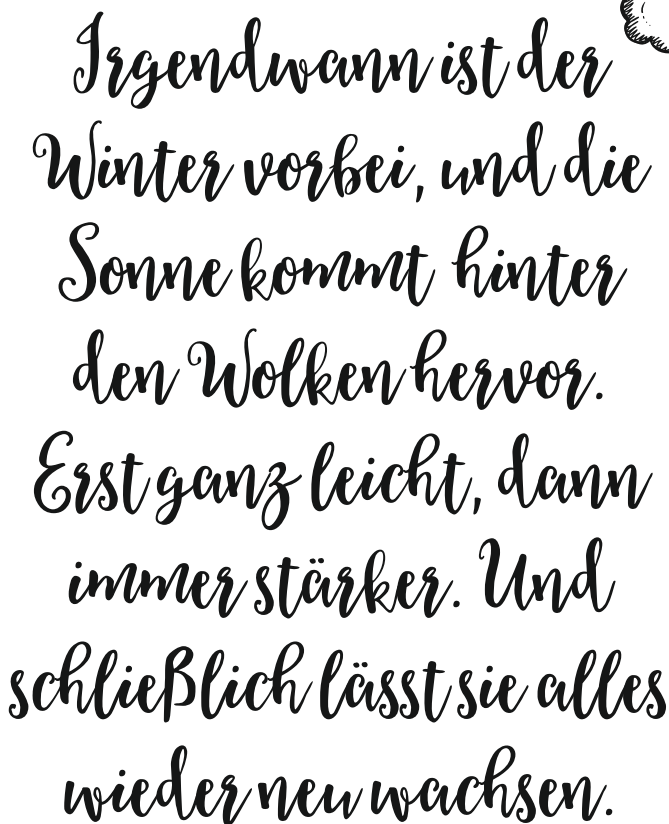 Irgendwann ist der
Winter vorbei, und die
Sonne kommt hinter
den Wolken hervor.
Erst ganz leicht, dann
immer stärker. Und
schließlich lässt sie alles
wieder neu wachsen.